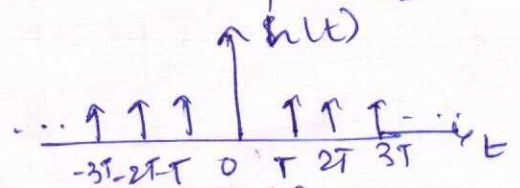 h(t)
... ...
-3T -2T -T 0 T 2T 3T t